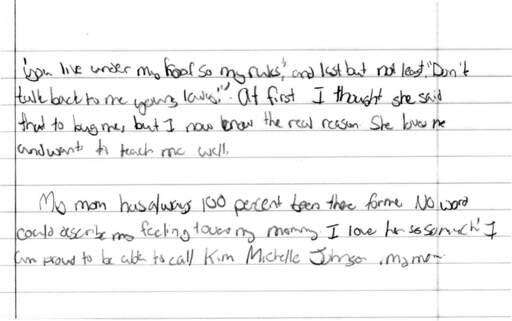 "you live under my roof so my rules", and last but not least, "Don't
talk back to me young lady!". At first I thought she said
that to bug me, but I now know the real reason She loves me
and wants to teach me well.
My mom has always 100 percent been there for me No word
could describe my feeling towards my mommy I love her so so much! I
am proud to be able to call Kim Michelle Johnson, my mom